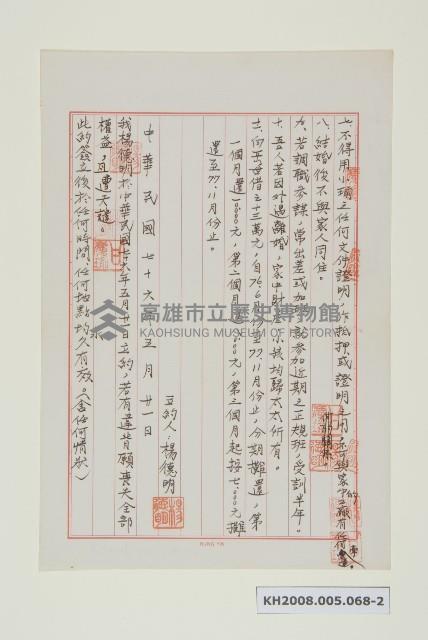 七、不得用小瑜之任何文件證明作抵押或證明之用,亦不與家中的一切有任何牽連。
八、結婚後不與家人同住。
九、若調職參謀,常出差或加班,於參加近期之正規班,受訓半年。
十、吾人若因外遇離婚,家中財產小孩均歸太太所有。
十一、向岳母借之十三萬元,自76.6月份至77.11月份止,分期攤還,第
一個月還10000元,第二個月000元,第三個月起按七、000元攤
還至77.11月份止。
立約人:楊德明
中華民國七十六年五月廿一日
我楊德明於中華民國七十六年五月廿一日立約,若有違背願喪失全部
權益,且遭天譴。
此約簽立後於任何時間、任何地點均永久有效。(含任何情形)
高雄市立歷史博物館
KAOHSIUNG MUSEUM OF HISTORY
KH2008.005.068-2